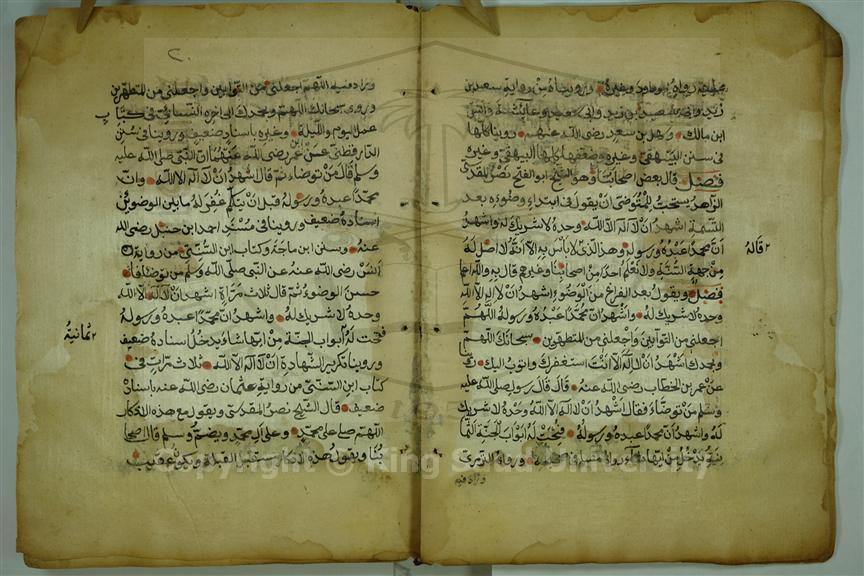 رواه ابو داود وغيره ورويناه من رواية سعيد بن
زيد وابي سعيد وعائشة وانس
ابن مالك وسهل بن سعد رضي الله عنهم رويناها كلها
في سنن البيهقي وغيره وضعفها كلها البيهقي وغيره
فصل قال بعض اصحابنا وهو الشيخ ابو الفتح نصر المقدسي
الزاهد يستحب للمتوضئ ان يقول في ابتداء وضوءه بعد
التسمية اشهد ان لا اله الا الله وحده لا شريك له واشهد
ان محمدا عبده ورسوله وهذا الذي لا باس به الا انه لا اصل له
من جهة السنة ولا نعلم احدا من اصحابنا وغيرهم قال به والله اعلم
فصل ويقول بعد الفراغ من الوضوء اشهد ان لا اله الا الله
وحده لا شريك له واشهد ان محمدا عبده ورسوله اللهم
اجعلني من التوابين واجعلني من المتطهرين سبحانك اللهم
وبحمدك اشهد ان لا اله الا انت استغفرك واتوب اليك
عن عمر بن الخطاب رضي الله عنه قال قال رسول صلى الله عليه
وسلم من توضاء فقال اشهد ان لا اله الا الله وحده لا شريك
له واشهد ان محمدا عبده ورسوله فتحت له ابواب الجنة الثما
نية يدخل من ايها شاء رواه مسلم في صحيحه ورواه الترمذي
وزاد فيه
قاله
وزاد فيه اللهم اجعلني من التوابين واجعلني من المتطهرين
وروى سبحانك اللهم وبحمدك الى اخره النسائي في كتاب
عمل اليوم والليلة وغيره باسناد ضعيف وروينا في سنن
الدارقطني عن ابن عمر رضي الله عنهما ان النبي صلى الله عليه
وسلم قال من توضاء ثم قال اشهد ان لا اله الا الله وان
محمدا عبده ورسوله قبل ان يتكلم غفر له ما بين الوضوئين
اسناده ضعيف وروينا في مسند احمد ابن حنبل رضي الله
عنه وسنن ابن ماجة وكتاب ابن السني من رواية
انس رضي الله عنه عن النبي صلى الله وسلم من توضاء فا
حسن الوضوء ثم قال ثلاث مرات اشهد ان لا اله الا الله
وحده لا شريك له واشهد ان محمدا عبده ورسوله
فتحت له ابواب الجنة من ايها شاء يدخل اسناده ضعيف
وروينا تكرير الشهادة ان لا اله الا الله ثلاث مرات في
كتاب ابن السني من رواية عثمان رضي الله عنه باسناد
ضعيف قال الشيخ نصر المقدسي ويقول مع هذه الاذكار
اللهم صل على محمد وعلى ال محمد ويضم وسلم قال اصحا
بنا ويقول هذه الاذكار مستقبل القبلة ويكون عقيب
ثمانية
Copyright © King Saud University